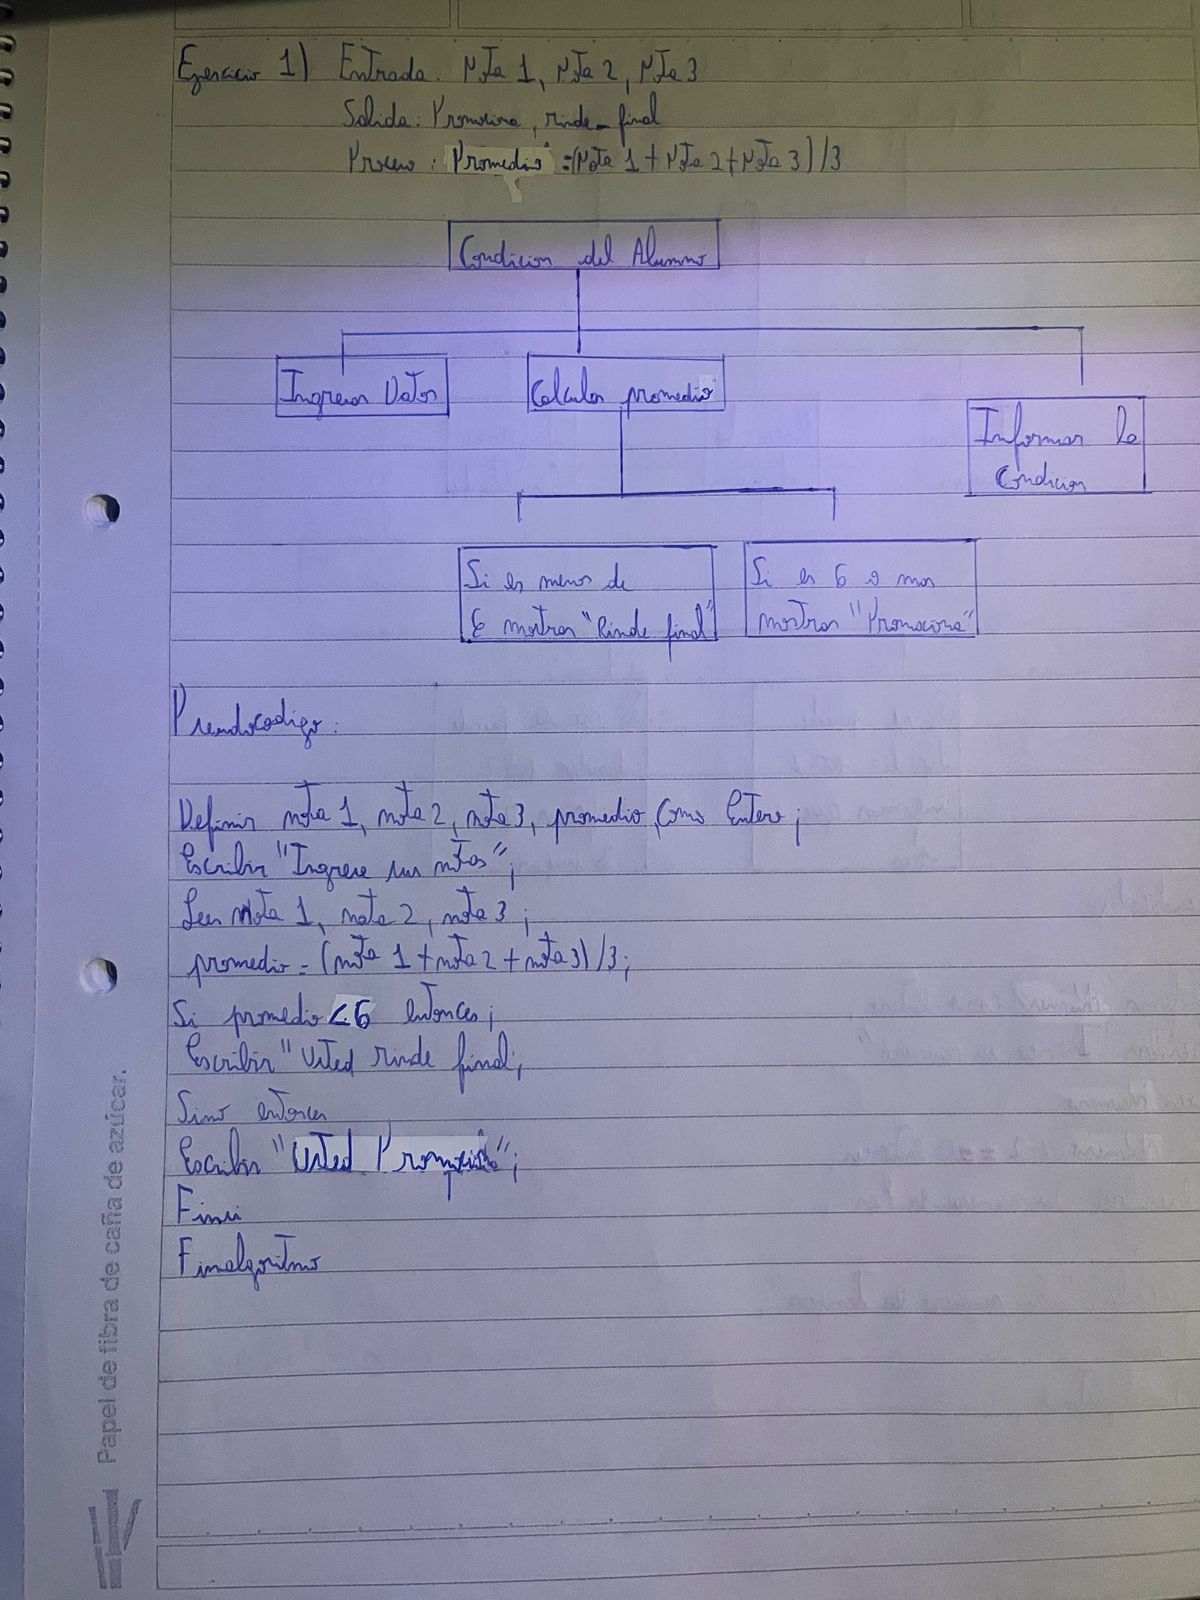 Ejercicio 1) Entrada: Nota 1, Nota 2, Nota 3
Salida: Promociona, rinde_final
Proceso: Promedio =(Nota 1 + Nota 2 + Nota 3)/3
Condicion del Alumno
Ingresar Datos
Calcular promedio
Informar la
Condicion
Si es menos de
6 mostrar "Rinde final"
Si es 6 o mas
mostrar "Promociona"
Pseudocodigo:
Definir nota 1, nota 2, nota 3, promedio, Como Entero;
Escribir "Ingrese sus notas";
Leer Nota 1, nota 2, nota 3;
promedio = (nota 1 + nota 2 + nota 3)/3;
Si promedio < 6 entonces;
Escribir "Usted rinde final;
Sino entonces
Escribir "Usted Promociona";
Finsi
Finalgoritmo
Papel de fibra de caña de azúcar.